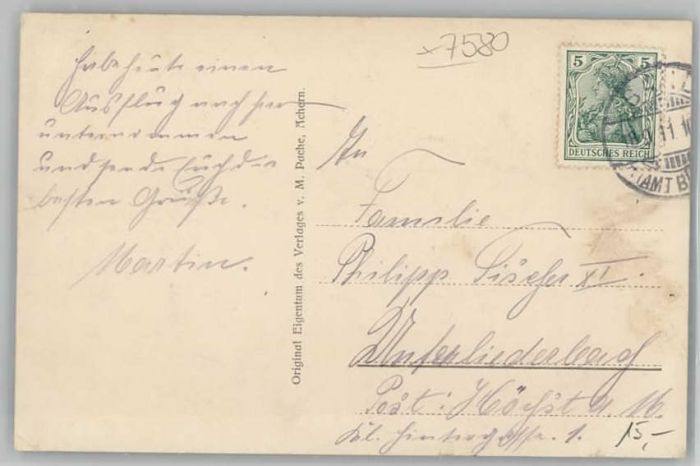 x7580
Habe heute einen
Ausflug nach hier
unternommen
und sende Euch die
besten Grüße.
Martin.
Original Eigentum des Verlages v. M. Pache, Achern.
5 5
DEUTSCHES REICH
AMT B
An
Familie
Philipp Fischer XI
Unterliederbach
Post: Höchst a. M.
Kl. Hintergasse. 1.
15,-